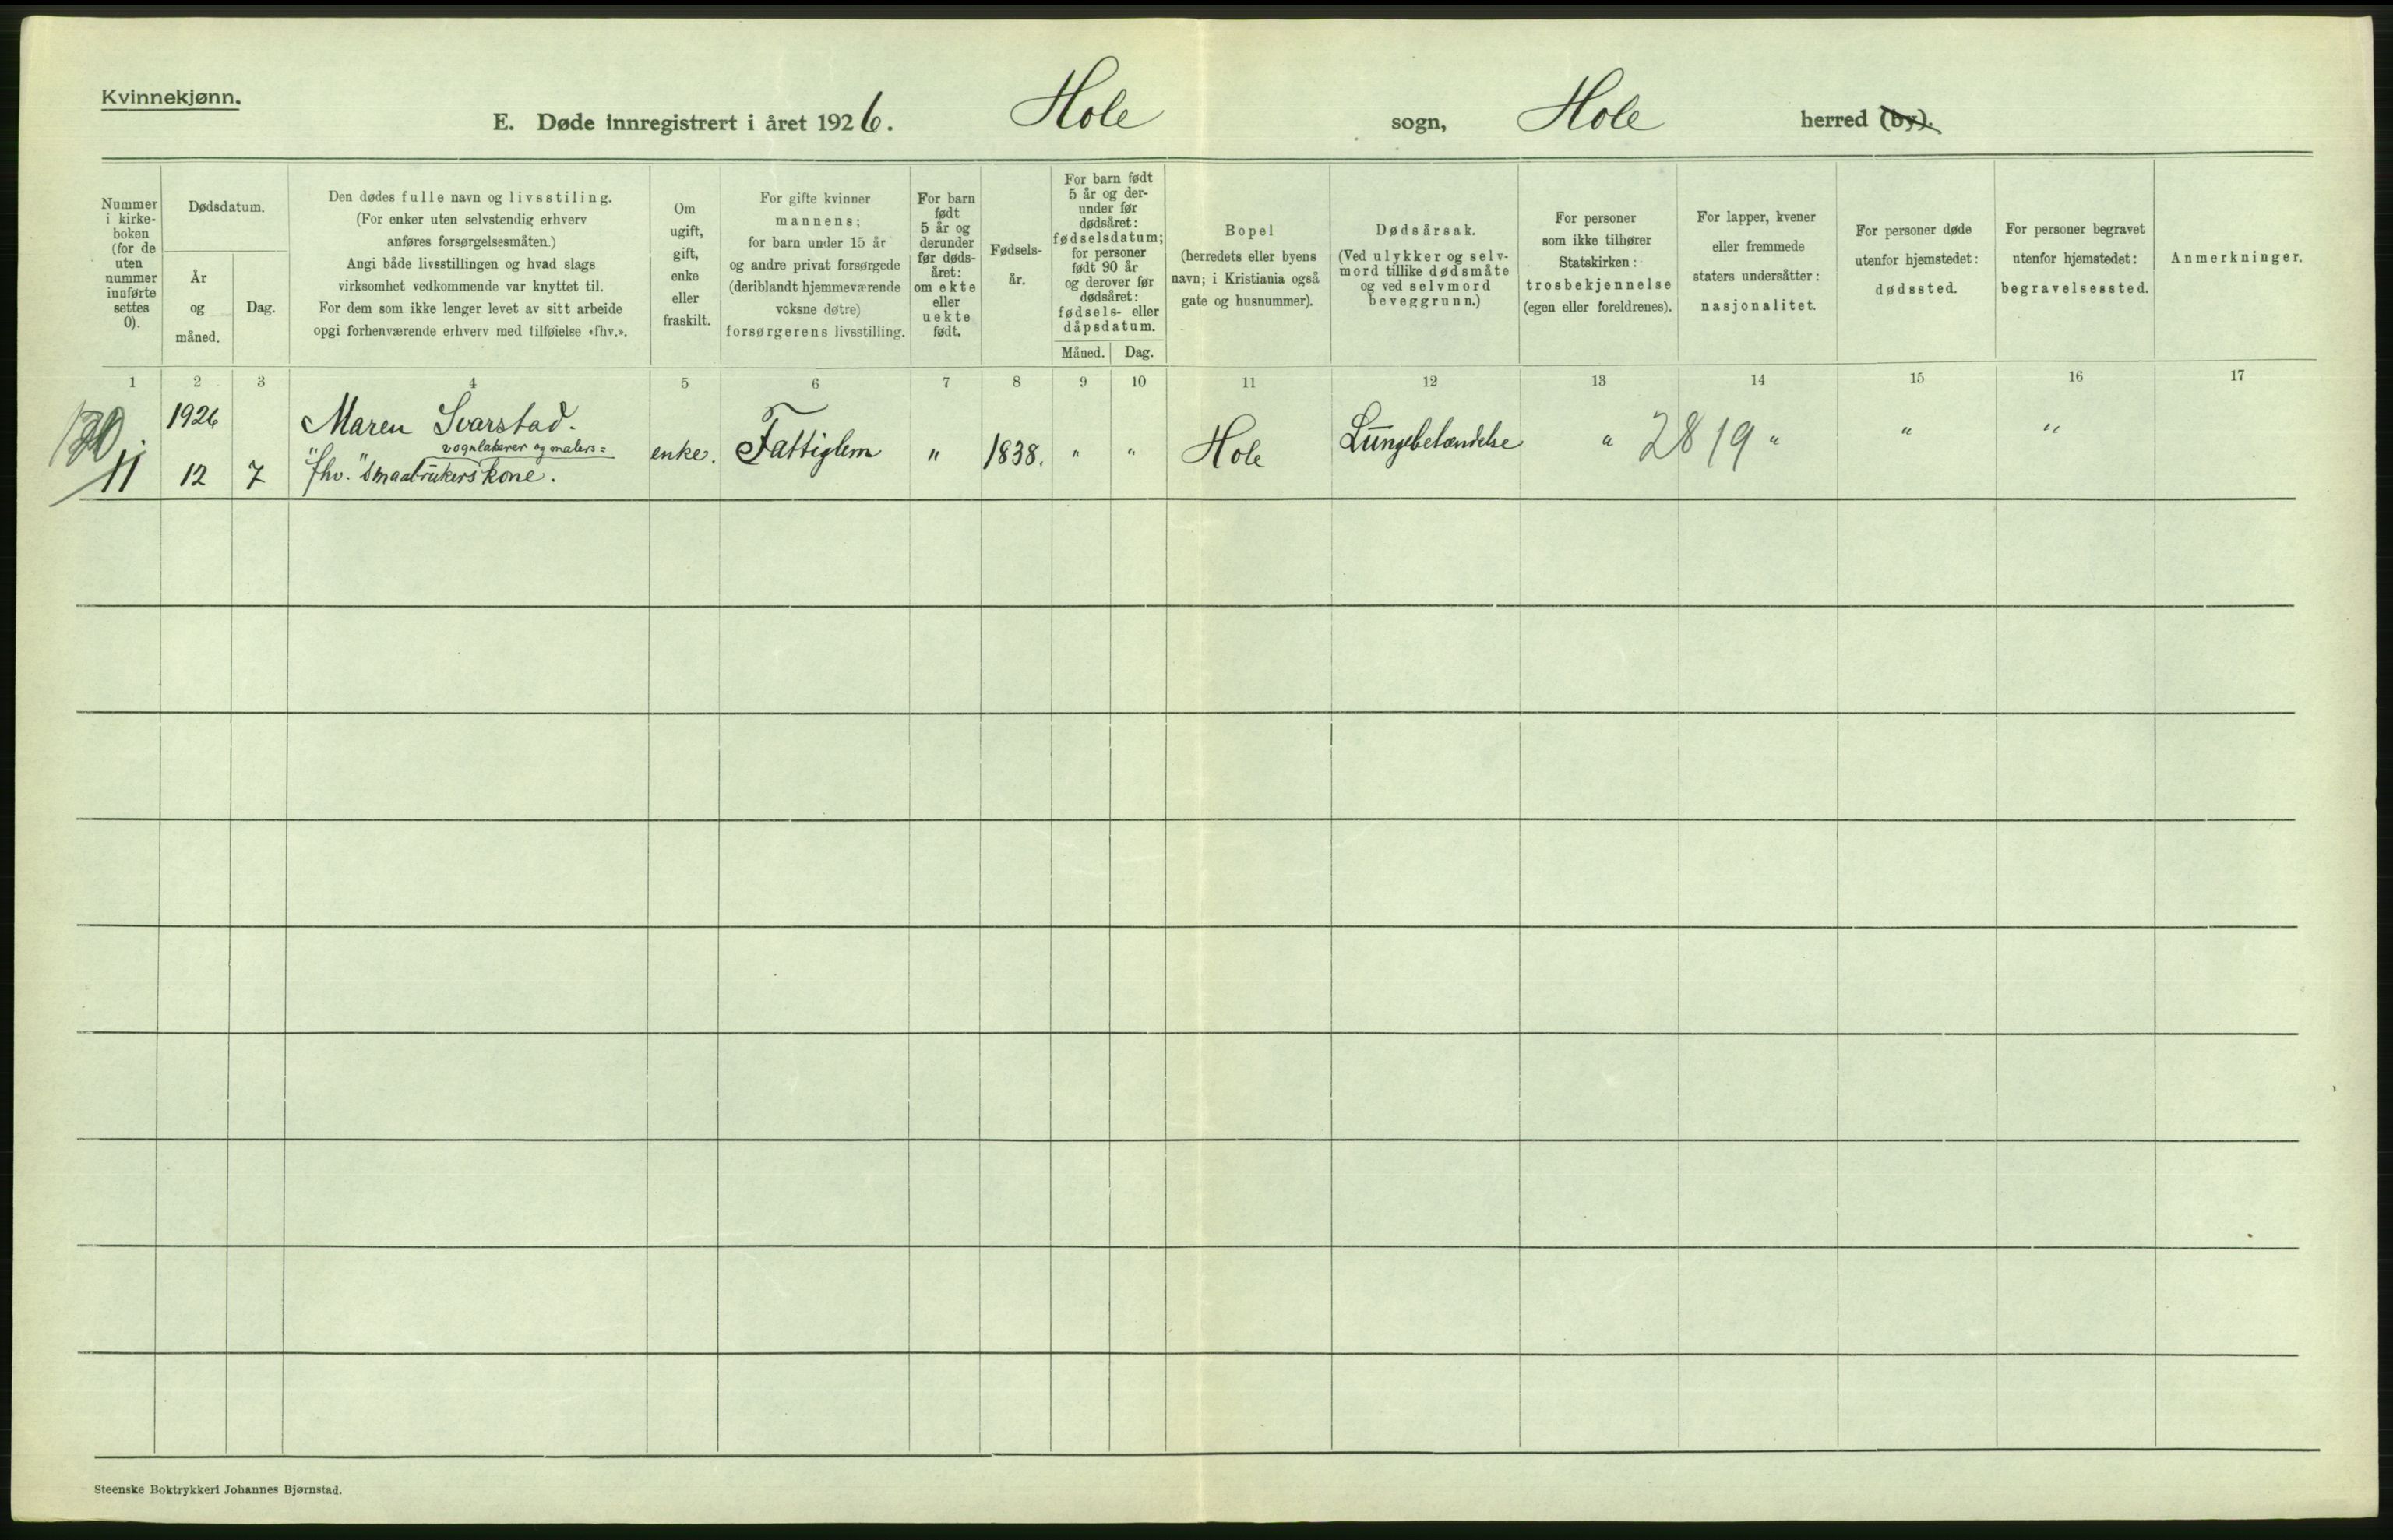 Kvinnekjønn.
E. Døde innregistrert i året 1926. Hole sogn, Hole herred (by).
Nummer
i kirke-
boken
(for de
uten
nummer
innførte
settes
0).
Dødsdatum.
År
og
måned.
Dag.
Den dødes fulle navn og livsstiling.
(For enker uten selvstendig erhverv
anføres forsørgelsesmåten.)
Angi både livsstillingen og hvad slags
virksomhet vedkommende var knyttet til.
For dem som ikke lenger levet av sitt arbeide
opgi forhenværende erhverv med tilføielse «fhv.».
Om
ugift,
gift,
enke
eller
fraskilt.
For gifte kvinner
mannens;
for barn under 15 år
og andre privat forsørgede
(deriblandt hjemmeværende
voksne døtre)
forsørgerens livsstilling.
For barn
født
5 år og
derunder
før døds-
året:
om ekte
eller
uekte
født.
Fødsels-
år.
For barn født
5 år og der-
under før
dødsåret:
fødselsdatum;
for personer
født 90 år
og derover før
dødsåret:
fødsels- eller
dåpsdatum.
Måned.
Dag.
Bopel
(herredets eller byens
navn; i Kristiania også
gate og husnummer).
Dødsårsak.
(Ved ulykker og selv-
mord tillike dødsmåte
og ved selvmord
beveggrunn.)
For personer
som ikke tilhører
Statskirken:
trosbekjennelse
(egen eller foreldrenes).
For lapper, kvener
eller fremmede
staters undersåtter:
nasjonalitet.
For personer døde
utenfor hjemstedet:
dødssted.
For personer begravet
utenfor hjemstedet:
begravelsessted.
Anmerkninger.
1 2 3 4 5 6 7 8 9 10 11 12 13 14 15 16 17
1926 Maren Svarstad.
vognlakerer og malers=
11 12 7 "fhv." smaabrukers kone. enke. Fattiglem " 1838. " " Hole Lungebetændelse " 2819 " " "
Steenske Boktrykkeri Johannes Bjørnstad.